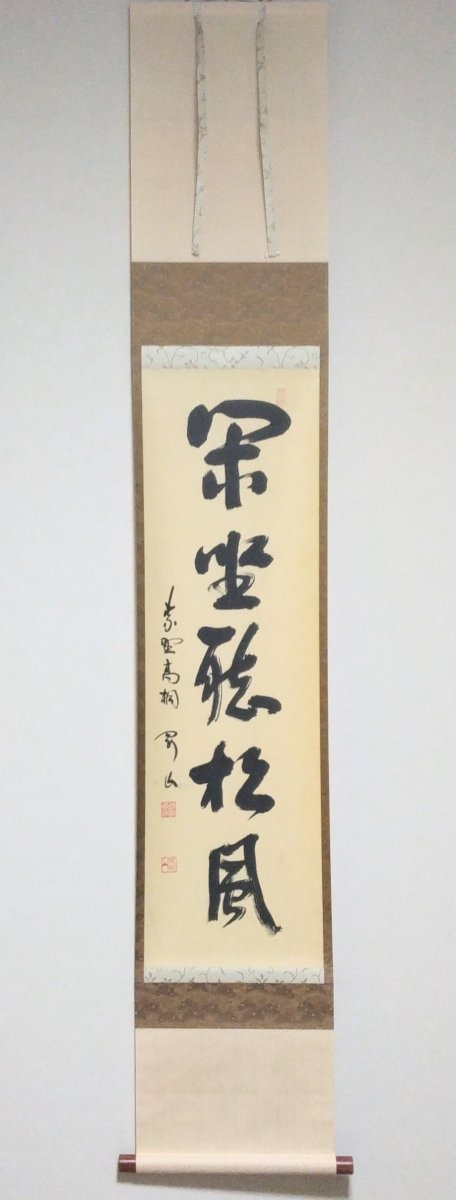 閑坐聴松風
紫野高桐